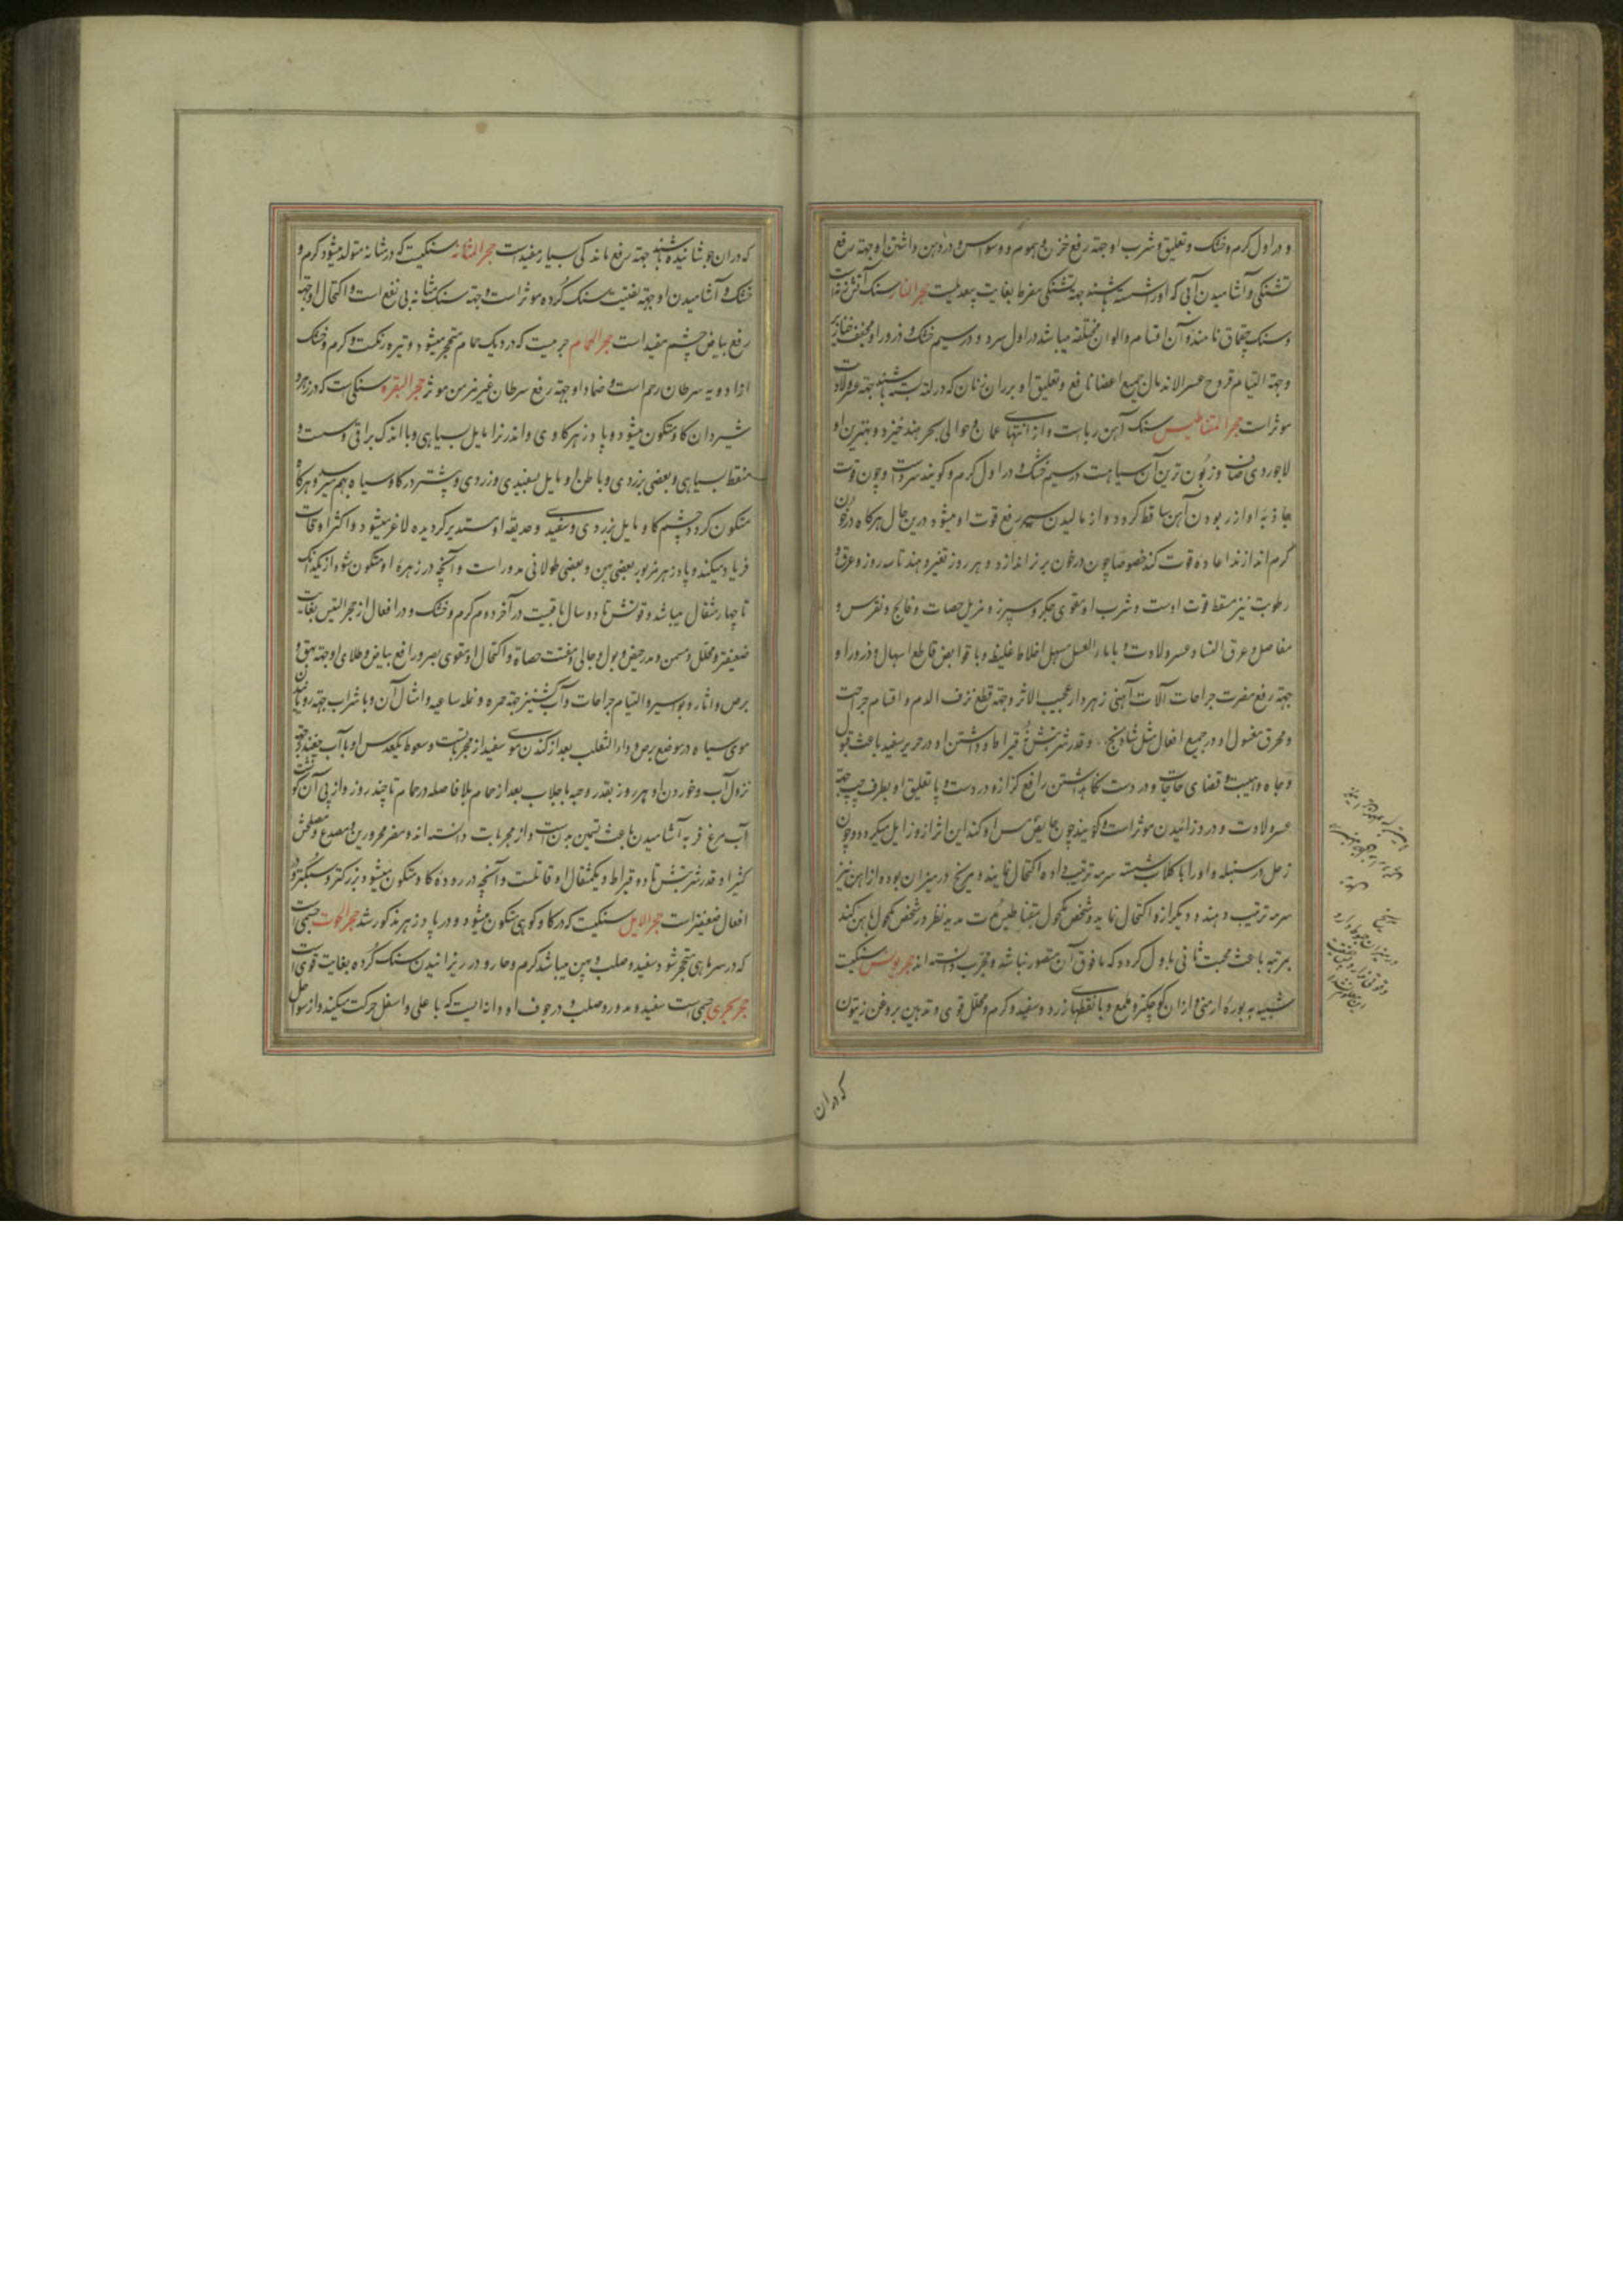 و در اول گرم و خشک و تعلیق و شرب او جهته رفع حزن و هموم و وسواس و در دهن داشتن او جهته رفع
تشنکی و آشامیدن آبی که او را شسته باشند جهته تشنکی مفرط بغایت بیعدیلست حجر النار سنک آتش زنه است
و سنک چقماق نامند و آن اقسام و الوان مختلفه میباشد در اول سرد و در سیم خشک و ذرور او مجفف خنازیر
و جهته التیام قروح عسر الاندمال جمیع اعضا نافع و تعلیق او بر ران زنان که در لته بسته باشند جهته عسر ولادت
موثر است حجر المغناطیس سنک آهن ربا است و از انتهای عمان و حوالی بحر هند خیزد و بهترین او
لاجوردی صاف و زبون ترین آن سیاهست در سیم خشک و در اول گرم و کویند سرد است و چون قوت
جاذبه او از ربودن آهن ساقط کردد و از مالیدن سیر رفع قوت او میشود درین حال هرکاه در خون
گرم اندازند اعاده قوت کند خصوصا چون در خون بز نر اندازد و هر روز تغیر دهند تا سه روز و عرق و
رطوبت نیز مسقط قوت اوست و شرب او مقوی جکر و سپرز و مزیل حصات و فالج و نقرس و
مفاصل و عرق النسا و عسر ولادت و با ماء العسل مسهل اخلاط غلیظ و با قوابض قاطع اسهال و ذرور او
جهته رفع مضرت جراحات آلات آهنی زهردار عجیب الاثر و جهته قطع نزف الدم و اقسام جراحت
و محرق مغسول او در جمیع افعال مثل شادنج و قدر شربتش قیراط و داشتن او در حریر سفید باعث قبول
و جاه و هیبت و قضای حاجات و در دست نکاهداشتن رافع کزاز و درد دست و پا و تعلیق او بطرف چپ جهته
عسر ولادت و درد زائیدن موثر است و کویند چون حایض مس او کند این اثر ازو زایل میکردد و چون
زحل در سنبله و او را با کلاب شسته سرمه ترتیب داده اکتحال نمایند و مریخ در میزان بوده از آهن نیز
سرمه ترتیب دهند و دیکر ازو اکتحال نماید و شخص مکحول بمقناطیس مدید نظر در شخص مکحول بآهن کند
بمرتبه باعث محبت ثانی باول کردد که ما فوق آن متصور نباشد و مجرب دانسته اند حجر سنکیست
شبیه به بوره ارمنی و از ان کوچکتر و ملمع و با نقطهای زرد و سفید و کرم و محلل قوی و تدهین بروغن زیتون
که دران
مریخ
در میزان
که دران جوشانیده باشند جهته رفع ماندکی بسیار مفید است حجر المثانه سنکیست که در مثانه متولد میشود کرم و
خشک و آشامیدن او جهته تفتیت سنک کرده موثر است و جهته سنک مثانه بی نفع است و اکتحال او جهته
رفع بیاض چشم مفید است حجر الحمام جرمیست که در دیک حمام متحجر میشود و تیره رنکست و کرم و خشک
از ادویه سرطان رحم است و ضماد او جهته رفع سرطان غیر مزمن موثر حجر البقره سنکی است که در زهره و
شیردان کاو متکون میشود و پادزهر کاوی و اندرزا مایل بسیاهی و با اندک براقی و سست و
منقط بسیاهی و بعضی بزردی و باطن او مایل بسفیدی و زردی و بیشتر در کاو سیاه بهم میرسد و هرکاه
متکون کردد چشم کاو مایل بزردی و سفیدی و حدیقه او مستدیر کردیده لاغر میشود و اکثر اوقات
فریاد میکند و پادزهر مزبور بعضی پهن و بعضی طولانی مدور است و آنچه در زهره او متکون شود از یکدانک
تا چهار مثقال میباشد و قوتش تا دو سال باقیست در آخر دوم کرم و خشک و در افعال از حجر التیس بغایت
ضعیفتر و محلل و مسمن و مدر حیض و بول و جالی و مفتت حصاة و اکتحال او مقوی بصر و رافع بیاض و طلای او جهته بهق و
برص و آثار و بواسیر و التیام جراحات و آب کشنیز جهته حمره و نمله ساعیه و امثال آن و با شراب جهته رویانیدن
موی سیاه در موضع برص و داء الثعلب بعد از کندن موی سفید از مجربانست و سعوط یکعدس او با آب چغندر جهته
نزول آب و خوردن او هر روز بقدر دو حبه با جلاب بعد از حمام بلا فاصله در حمام تا چند روز و از پی آن کوشت
آب مرغ فربه آشامیدن باعث تسمین بدنست و از مجربات دانسته اند و مضر محرورین و مصدع و مصلحش
کثیرا و قدر شربتش تا دو قیراط و یکمثقال او قاتلست و آنچه در روده کاو متکون میشود بزرکتر و سبکتر و در
افعال ضعیفتر است حجر الایل سنکیست که در کاو کوهی متکون میشود و در پادزهر مذکور شد حجر الحوت جسمی است
که در سر ماهی متحجر شود و سفید و صلب و پهن میباشد کرم و حار و در ریزانیدن سنک کرده بغایت قوی است
حجر بحری جسمی است سفید و مدور و صلب و در جوف او دانه ایست که باعلی و اسفل حرکت میکند و از سواحل